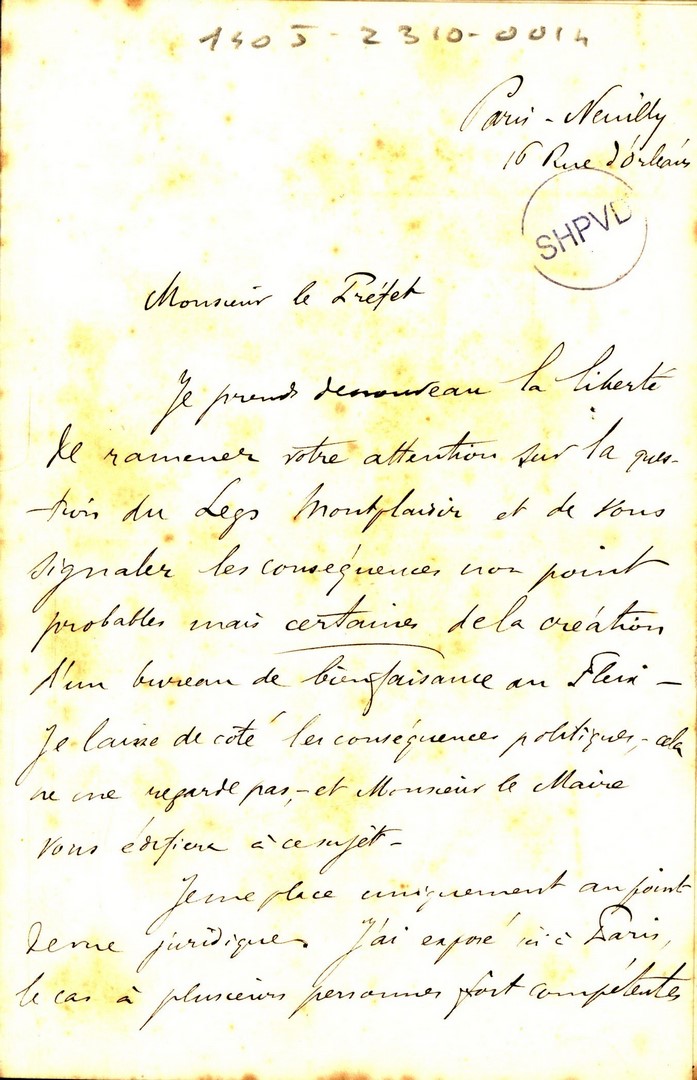 1405-2310-0014
Paris - Neuilly
16 Rue d'Orléans
SHPVD
Monsieur le Préfet
Je prends de nouveau la liberté
de ramener votre attention sur la ques-
tion du Legs Montplaisir et de vous
signaler les conséquences non point
probables mais certaines de la création
d'un bureau de bienfaisance au Fleix -
Je laisse de coté les conséquences politiques, - cela
ne me regarde pas, - et Monsieur le Maire
vous édifiera à ce sujet -
Je me place uniquement au point
de vue juridique. J'ai exposé ici à Paris,
le cas à plusieurs personnes fort compétentes